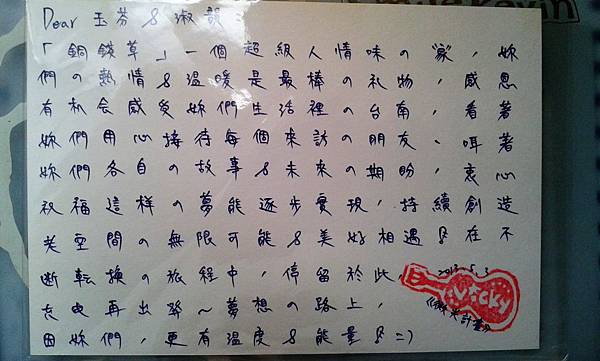 Dear 玉芬 & 淑韻:
「銅錢草」一個超級人情味の"家",妳
們の熱情&温暖是最棒の礼物,感恩
有机会感受妳們生活裡の台南,看著
妳們用心接待每個來訪の朋友、听著
妳們各自の故事&未來の期盼,衷心
祝福這樣の夢能逐步實現,持續創造
老空間の無限可能&美好相遇!在不
斷転換の旅程中,停留於此,
2013.5.3
VICKY
《微光計畫》
為由再出發~夢想の路上,
因妳們,更有温度&能量!=)